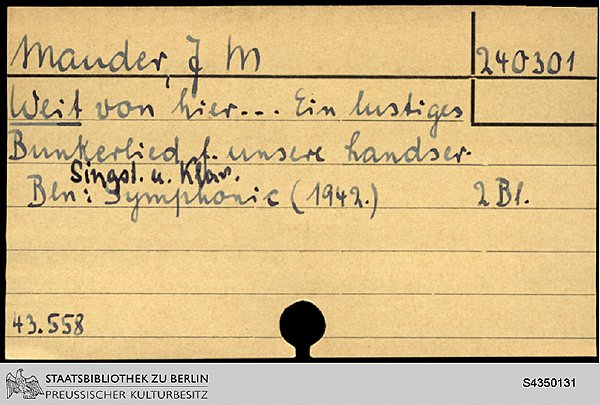 Mander, J M
240301
Weit von hier... Ein lustiges
Bunkerlied f. unsere Landser.
Singst. u. Klav.
Bln: Symphonic (1942.) 2 Bl.
43.558
STAATSBIBLIOTHEK ZU BERLIN
PREUSSISCHER KULTURBESITZ
S4350131